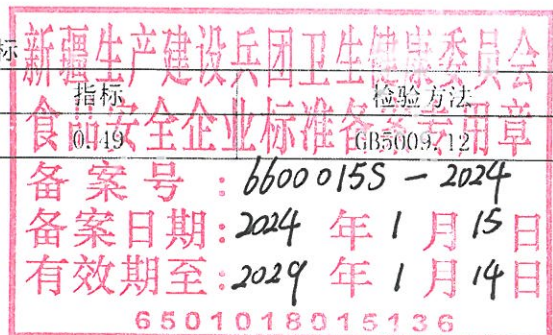 标
新疆生产建设兵团卫生健康委员会
指标 检验方法
食品安全企业标准备案专用章
0.49 GB5009.12
备案号：6600015S－2024
备案日期：2024 年 1 月 15 日
有效期至：2029 年 1 月 14 日
6501018015136